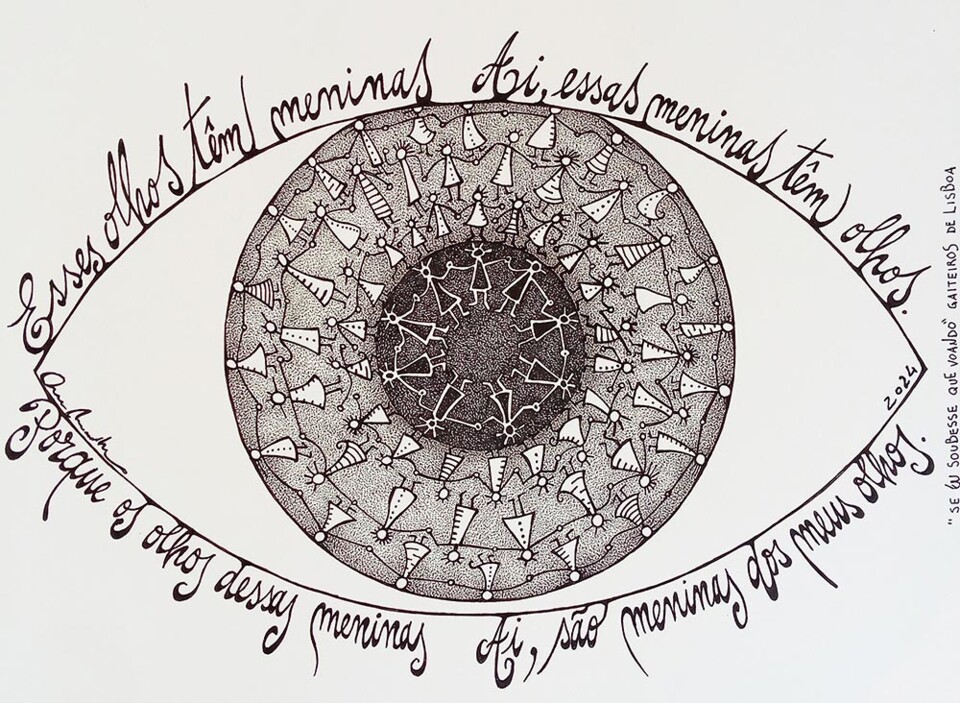 Esses olhos têm meninas
Ai, essas meninas têm olhos.
Porque os olhos dessas meninas
Ai, são meninas dos meus olhos.
2024
"SE EU SOUBESSE QUE VOANDO" GAITEIROS DE LISBOA